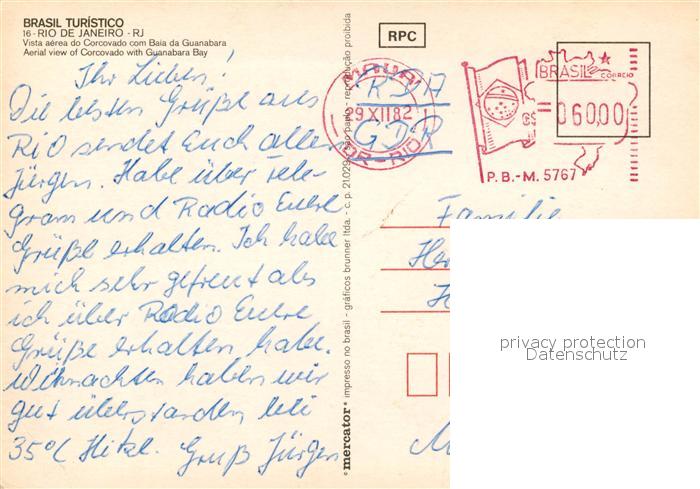 BRASIL TURÍSTICO
16 - RIO DE JANEIRO - RJ
Vista aérea do Corcovado com Baia da Guanabara
Aerial view of Corcovado with Guanabara Bay
Ihr Lieben!
Die besten Grüße aus
Rio sendet Euch allen
Jürgen. Habe über Tele-
gram und Radio Euere
Grüße erhalten. Ich habe
mich sehr gefreut als
ich über Radio Euere
Grüße erhalten habe.
Weihnachten haben wir
gut überstanden bei
35°C Hitze. Gruß Jürgen
mercator impresso no brasil - gráficos brunner ltda. - c. p. 21.029 - são paulo - reprodução proibida
RPC
MAUÁ
29 XII 82
DR-RIO
GDR
BRASIL
CORREIO
06000
P.B.-M. 5767
Familie
privacy protection
Datenschutz